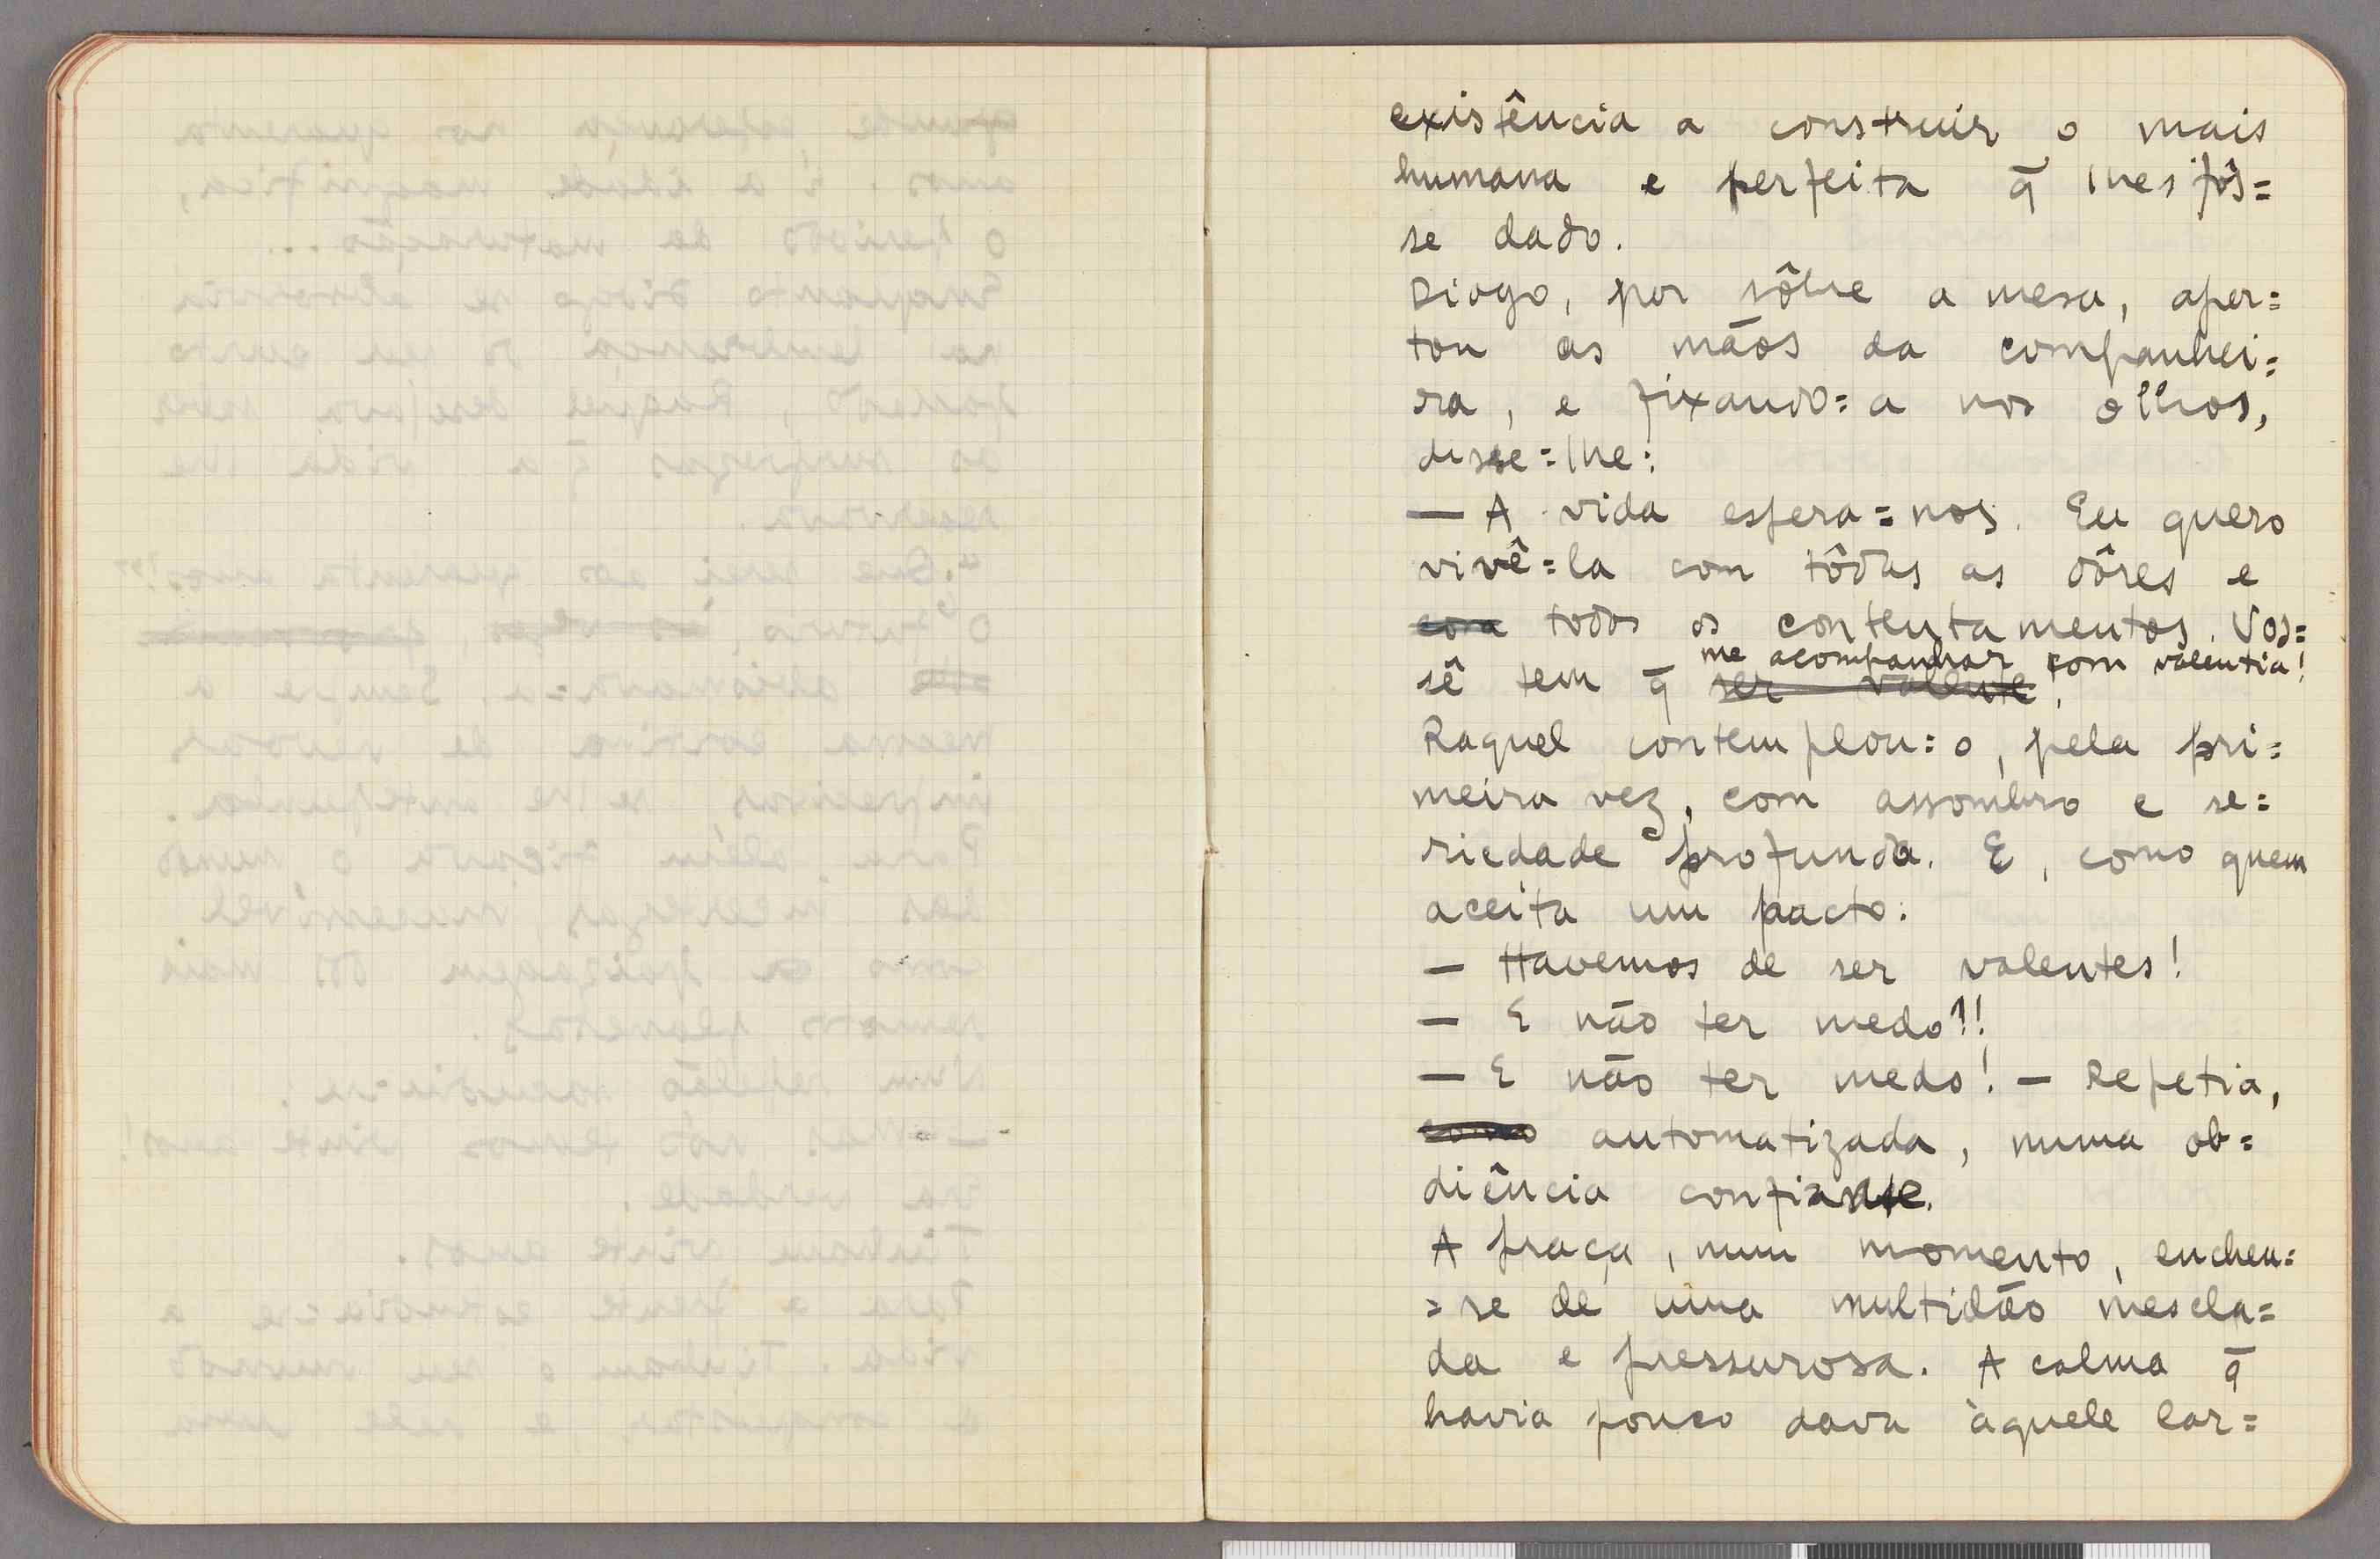 existência a construir o mais
humana e perfeita q̄ lhes fôs=
se dado.
Diogo, por sôbre a mesa, aper=
tou as mãos da companhei=
ra, e fixando=a nos olhos,
disse=lhe:
— A vida espera=nos. Eu quero
vivê=la com tôdas as dôres e
com todos os contentamentos. Vos=
me acompanhar com valentia!
sê tem q̄ ser valente.
Raquel contemplou=o, pela pri=
meira vez, com assombro e se=
riedade profunda. E, como quem
aceita um pacto:
— Havemos de ser valentes!
— E não ter medo?!
— E não ter medo! — Repetia,
como automatizada, numa ob=
diência confiante.
A praça, num momento, encheu=
=se de uma multidão mescla=
da e pressurosa. A calma q̄
havia pouco dava àquele lar=